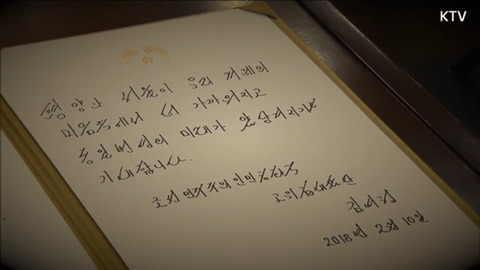 KTV
평양과 서울이 우리 겨레의
마음속에서 더 가까워지고
통일번영의 미래가 앞당겨지기를
기대합니다.
조선민주주의인민공화국 고위급대표단
김여정
2018년 2월 10일